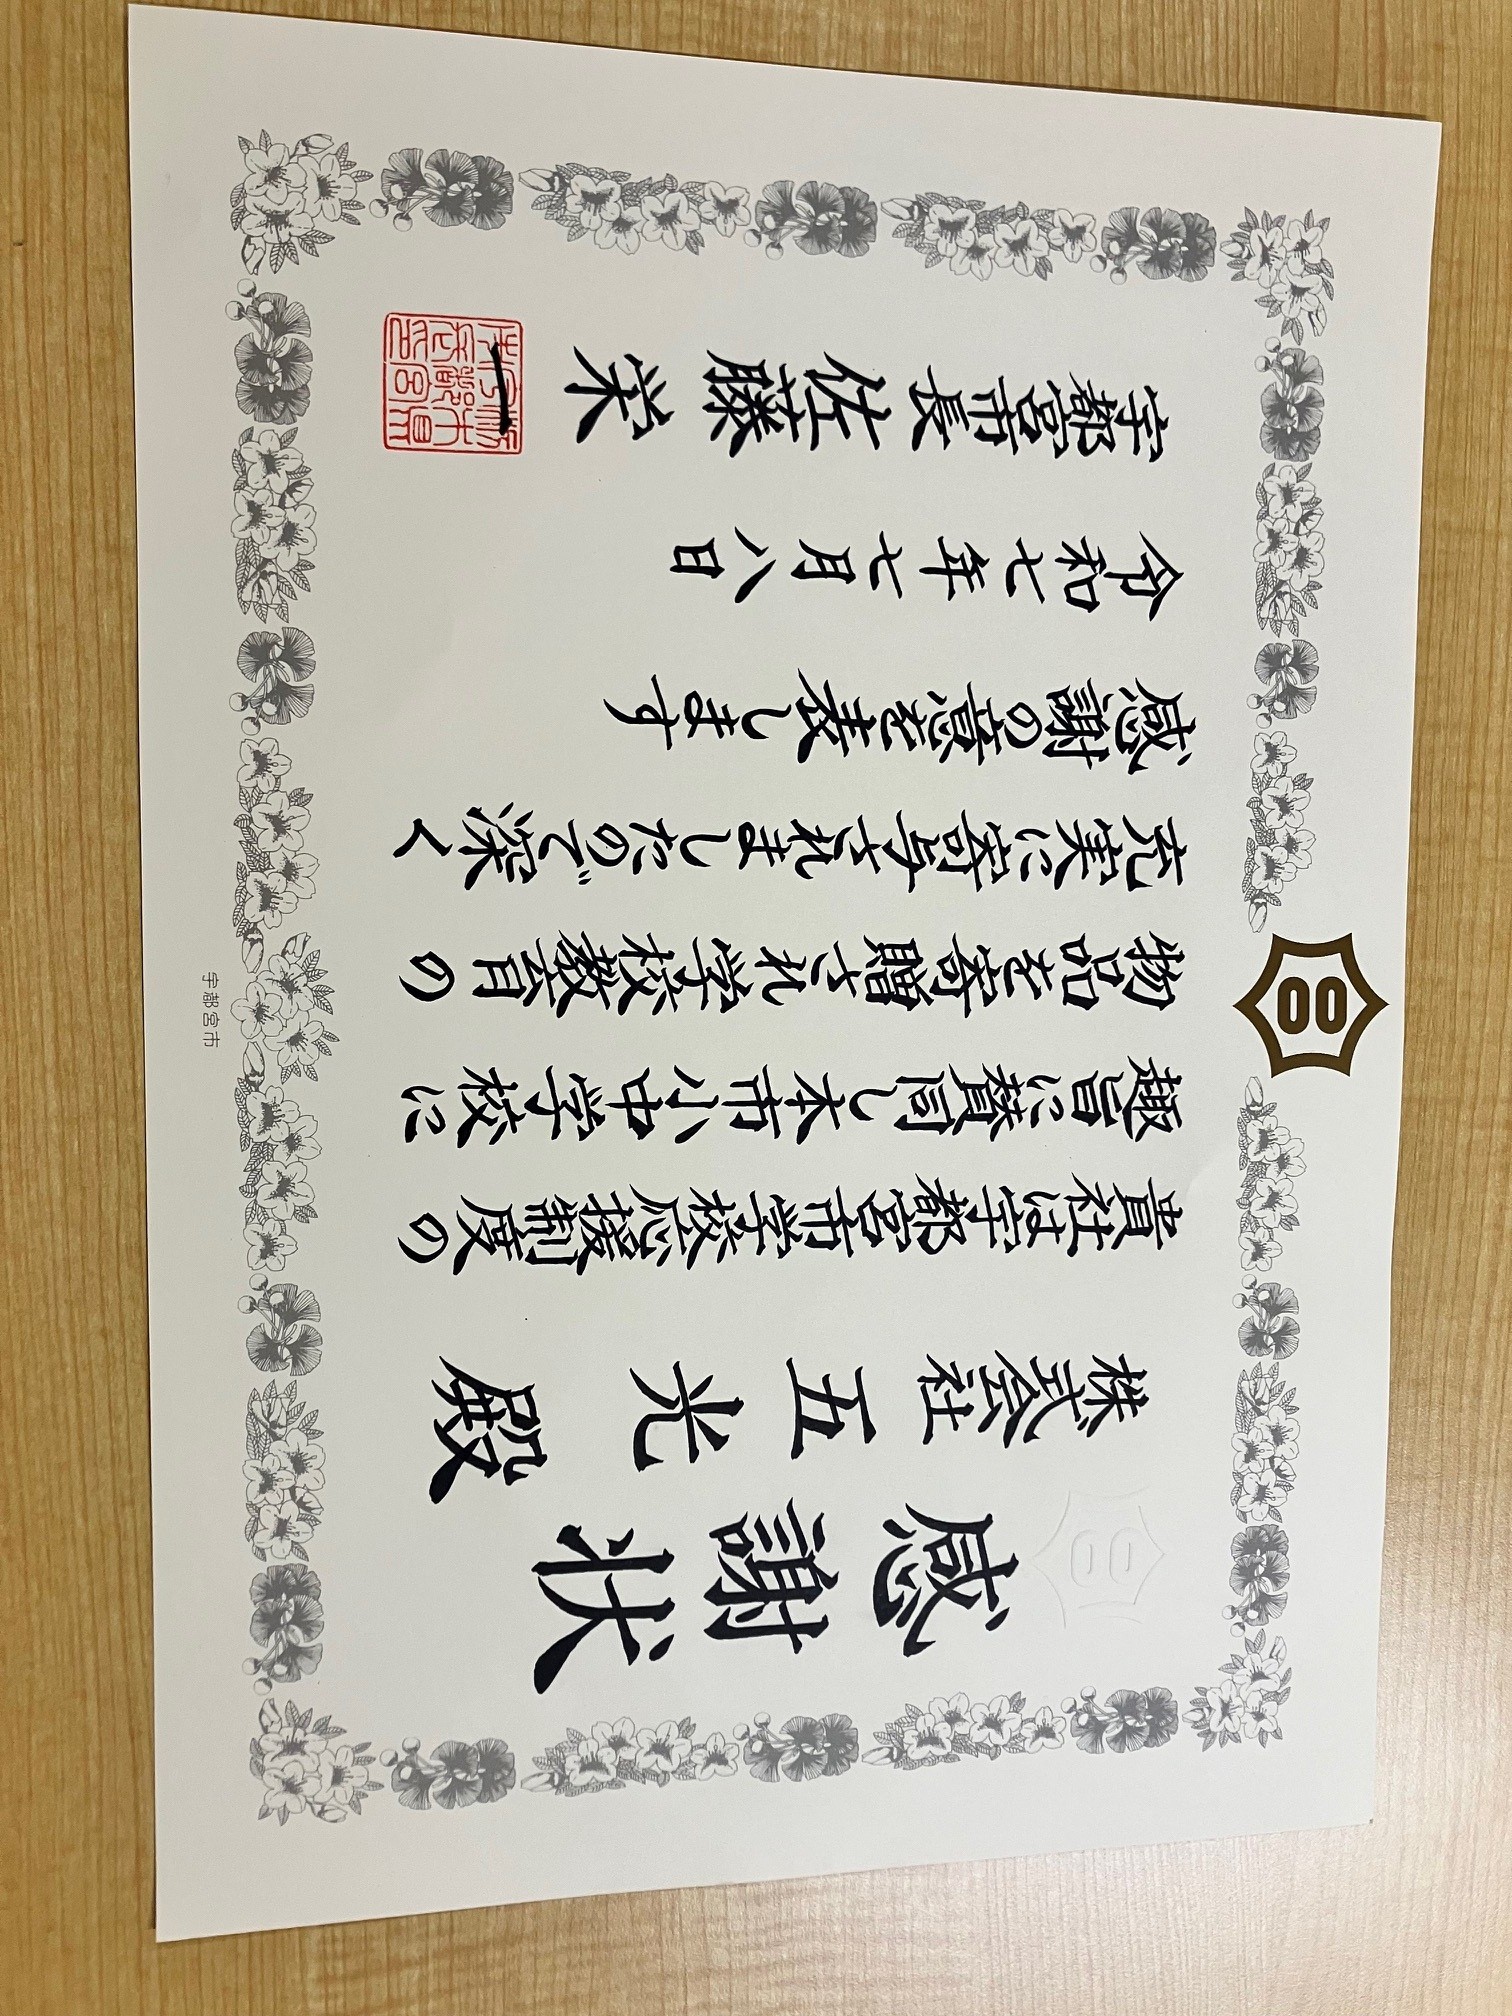 感謝状
株式会社 五光 殿
貴社は宇都宮市学校応援制度の
趣旨に賛同し本市小中学校に
物品を寄贈され学校教育の
充実に寄与されましたので深く
感謝の意を表します
令和七年七月八日
宇都宮市長 佐藤栄一
宇都宮市